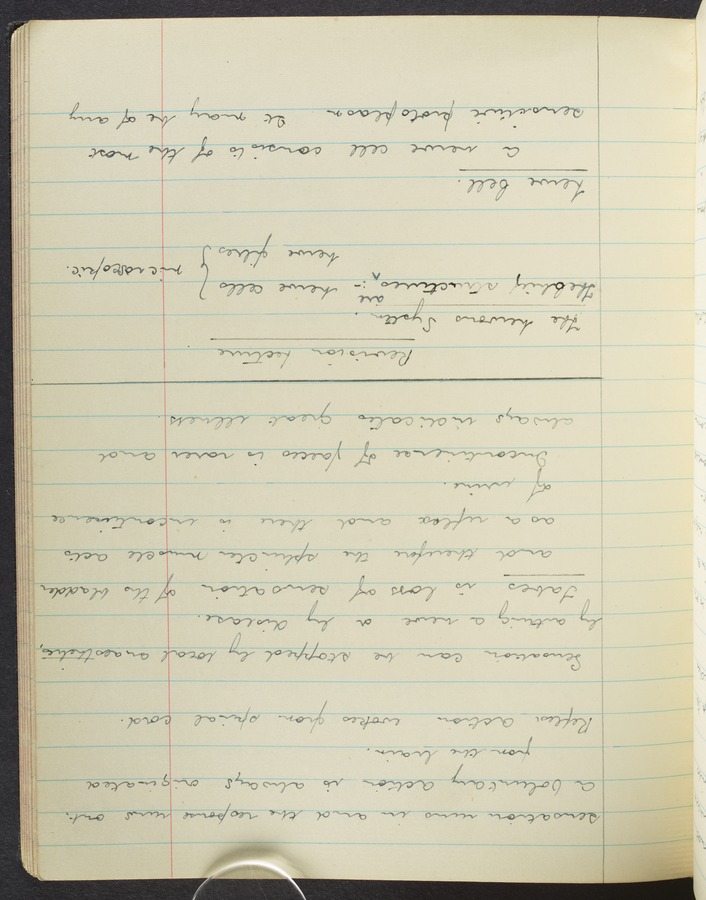 sensation runs in and the response runs out.
A Voluntary action is always originated
from the brain.
Reflex action works from spinal cord.
Sensation can be stopped by local anaesthetic,
by cutting a nerve or by disease.
Tabes is loss of sensation of the bladder
and therefore the sphincter muscle acts
as a reflex and there is incontinence
of urine.
Incontinence of faeces is rarer and
always indicates great illness.
Revision Lecture
The Nervous System.
are
The chief structures :- Nerve cells } microscopic.
Nerve fibres }
Nerve Cell.
A nerve cell consists of the most
sensitive protoplasm It may be of any